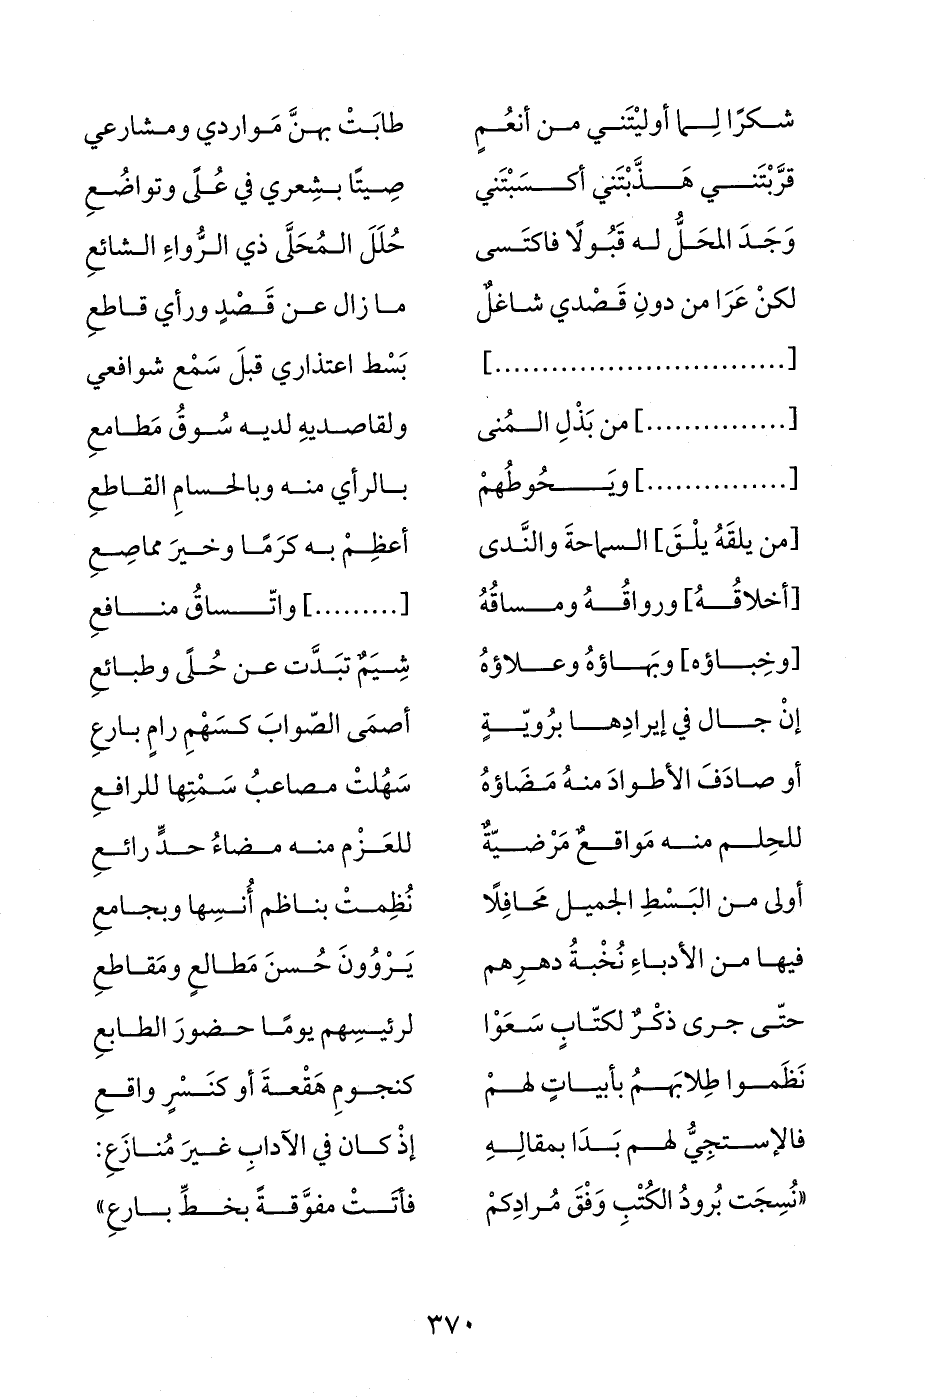 شكرًا لِما أوليْتَني من أنعُمٍ طابَتْ بهنَّ مَواردي ومشارعي
قرَّبْتَني هَذَّبْتَني أكسَبْتَني صِيتًا بشِعري في عُلًى وتواضُعِ
وَجَدَ المَحَلُّ له قَبُولًا فاكتَسى حُلَلَ المُحَلَّى ذي الرُّواءِ الشائعِ
لكنْ عَرَا من دونِ قَصْدي شاغلٌ ما زال عن قَصْدٍ ورأي قاطعِ
[..............................] بَسْط اعتذاري قبلَ سَمْع شوافعي
[...............] من بَذْلِ المُنى ولقاصديهِ لديه سُوقُ مَطامعِ
[...............] ويَحُوطُهمْ بالرأي منه وبالحسامِ القاطعِ
[من يلقَهُ يلْقَ] السماحةَ والنَّدى أعظِمْ به كرَمًا وخيرَ مماصِعِ
[أخلاقُهُ] ورواقُهُ ومساقُهُ [.........] واتّساقُ منافعِ
[وخِباؤه] وبَهاؤهُ وعلاؤهُ شِيَمٌ تبَدَّت عن حُلًى وطبائعِ
إنْ جال في إيرادِها برُويّةٍ أصمَى الصّوابَ كسَهْمِ رامٍ بارعِ
أو صادَفَ الأطوادَ منهُ مَضَاؤهُ سَهُلتْ مصاعبُ سَمْتِها للرافعِ
للحِلم منه مَواقعٌ مَرْضيّةٌ للعَزْمِ منه مضاءُ حدٍّ رائعِ
أولى من البَسْطِ الجميل مَحَافِلًا نُظِمتْ بناظمِ أُنسِها وبجامعِ
فيها من الأدباءِ نُخْبةُ دهرِهم يَرْوُونَ حُسنَ مَطالعٍ ومَقاطعِ
حتّى جرى ذكْرٌ لكتّابٍ سَعَوْا لرئيسِهم يومًا حضورَ الطابعِ
نَظَموا طِلابَهمُ بأبياتٍ لهمْ كنجومِ هَقْعةَ أو كنَسْرٍ واقعِ
فالإستجيُّ لهم بَدَا بمقالِهِ إذْ كان في الآدابِ غيرَ مُنازَعِ:
«نُسِجَت بُرودُ الكُتْبِ وَفْقَ مُرادِكمْ فأتَتْ مفوَّقةً بخطٍّ بارعِ»
٣٧٠